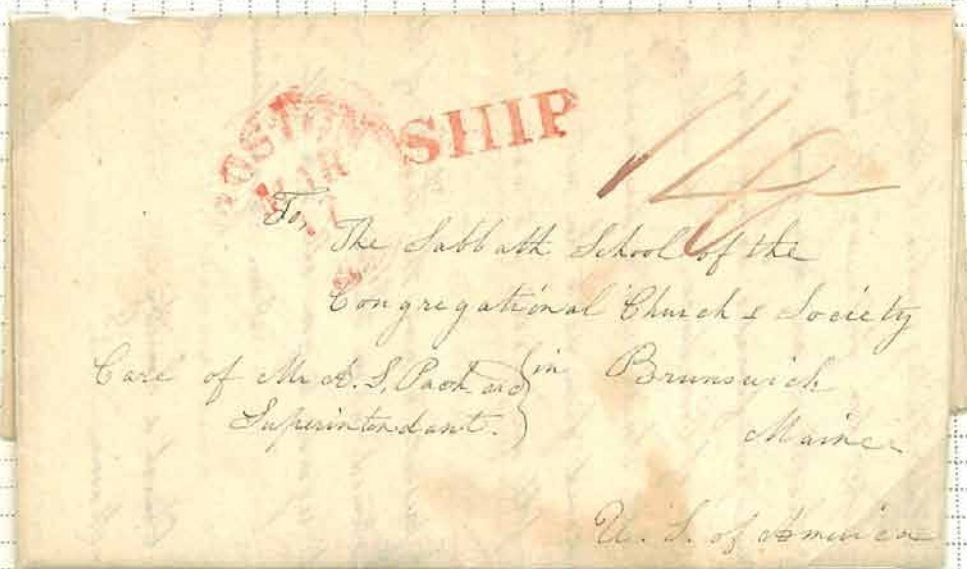 BOSTON
MAR
SHIP
14
For
The Sabbath School of the
Congregational Church & Society
in Brunswick
Care of Mr A. S. Packard
Superintendant.
Maine
U. S. of America